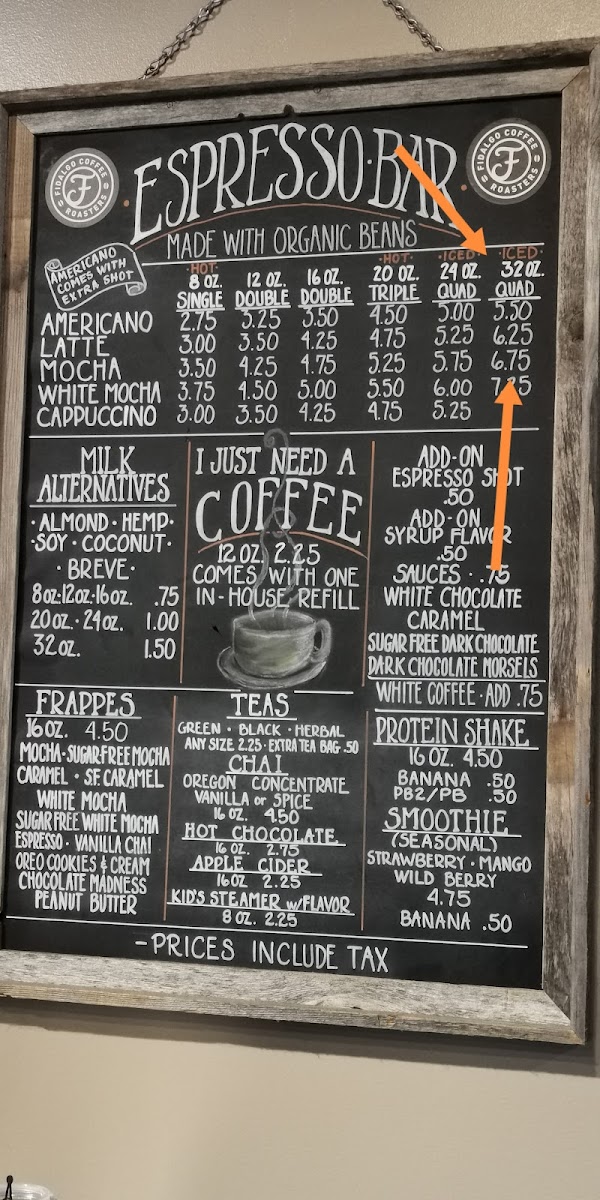 FIDALGO COFFEE ROASTERS
ESPRESSO·BAR
FIDALGO COFFEE ROASTERS
MADE WITH ORGANIC BEANS
AMERICANO
COMES WITH
EXTRA SHOT
·HOT· ·HOT· ·ICED· ·ICED·
8 OZ. 12 OZ. 16 OZ. 20 OZ. 24 OZ. 32 OZ.
SINGLE DOUBLE DOUBLE TRIPLE QUAD QUAD
AMERICANO 2.75 3.25 3.50 4.50 5.00 5.50
LATTE 3.00 3.50 4.25 4.75 5.25 6.25
MOCHA 3.50 4.25 4.75 5.25 5.75 6.75
WHITE MOCHA 3.75 4.50 5.00 5.50 6.00 7.25
CAPPUCCINO 3.00 3.50 4.25 4.75 5.25
MILK
ALTERNATIVES
·ALMOND·HEMP·
·SOY·COCONUT·
·BREVE·
8oz·12oz·16oz. .75
20oz.·24oz. 1.00
32oz. 1.50
I JUST NEED A
COFFEE
12 OZ. 2.25
COMES WITH ONE
IN-HOUSE REFILL
ADD-ON
ESPRESSO SHOT
.50
ADD-ON
SYRUP FLAVOR
.50
SAUCES · .75
WHITE CHOCOLATE
CARAMEL
SUGAR FREE DARK CHOCOLATE
DARK CHOCOLATE MORSELS
WHITE COFFEE·ADD .75
FRAPPES
16OZ. 4.50
MOCHA·SUGAR FREE MOCHA
CARAMEL · SF CARAMEL
WHITE MOCHA
SUGAR FREE WHITE MOCHA
ESPRESSO · VANILLA CHAI
OREO COOKIES & CREAM
CHOCOLATE MADNESS
PEANUT BUTTER
TEAS
GREEN · BLACK · HERBAL
ANY SIZE 2.25 · EXTRA TEA BAG .50
CHAI
OREGON CONCENTRATE
VANILLA or SPICE
16 OZ. 4.50
HOT CHOCOLATE
16 OZ. 2.75
APPLE CIDER
16OZ 2.25
KID'S STEAMER w/FLAVOR
8 OZ. 2.25
PROTEIN SHAKE
16 OZ. 4.50
BANANA .50
PB2/PB .50
SMOOTHIE
(SEASONAL)
STRAWBERRY · MANGO
WILD BERRY
4.75
BANANA .50
-PRICES INCLUDE TAX